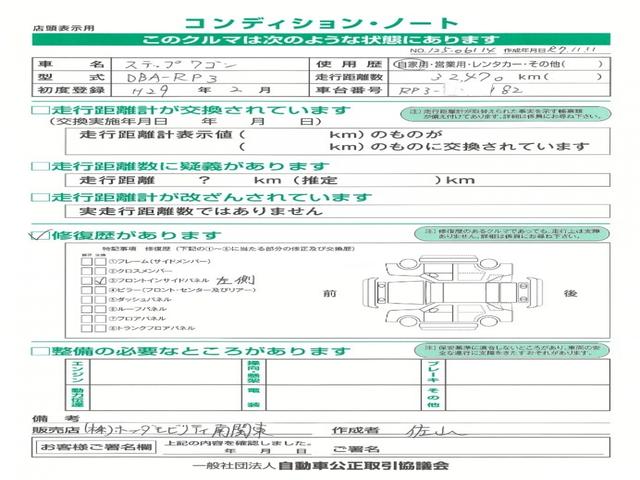 店頭表示用
コンディション・ノート
このクルマは次のような状態にあります
NO.125-06114 作成年月日 R7.11.11
車名 ステップワゴン 使用歴 自家用・営業用・レンタカー・その他( )
型式 DBA-RP3 走行距離数 32470 km( )
初度登録 H29 年 2 月 車台番号 RP3- 182
□走行距離計が交換されています
(交換実施年月日 年 月 日)
注)走行距離計が取替えられた事実を示す帳票類が備え付けてあります。詳細は係員にお尋ね下さい。
走行距離計表示値( km)のものが
( km)のものに交換されています
□走行距離数に疑義があります
走行距離 ? km(推定 )km
□走行距離計が改ざんされています
実走行距離数ではありません
修復歴があります
注)修復歴のあるクルマであっても、走行上は支障ありません。詳細は係員にお尋ね下さい。
特記事項 修復歴(下記の①~⑧に当たる部分の修正及び交換歴)
修正 交換
①フレーム(サイドメンバー)
②クロスメンバー
③フロントインサイドパネル 左側
④ピラー(フロント・センター及びリアー)
⑤ダッシュパネル
⑥ルーフパネル
⑦フロアパネル
⑧トランクフロアパネル
前
後
□整備の必要なところがあります
注)保安基準に適合しないところがあり、車両の安全な運行に支障をきたすおそれがあります。
エンジン
操向・懸架
ブレーキ
動力伝達
電装
その他
備考
販売店 (株)ホンダモビリティ南関東 作成者 佐山
お客様ご署名欄 上記の内容を確認しました。
年 月 日 ご署名
一般社団法人 自動車公正取引協議会